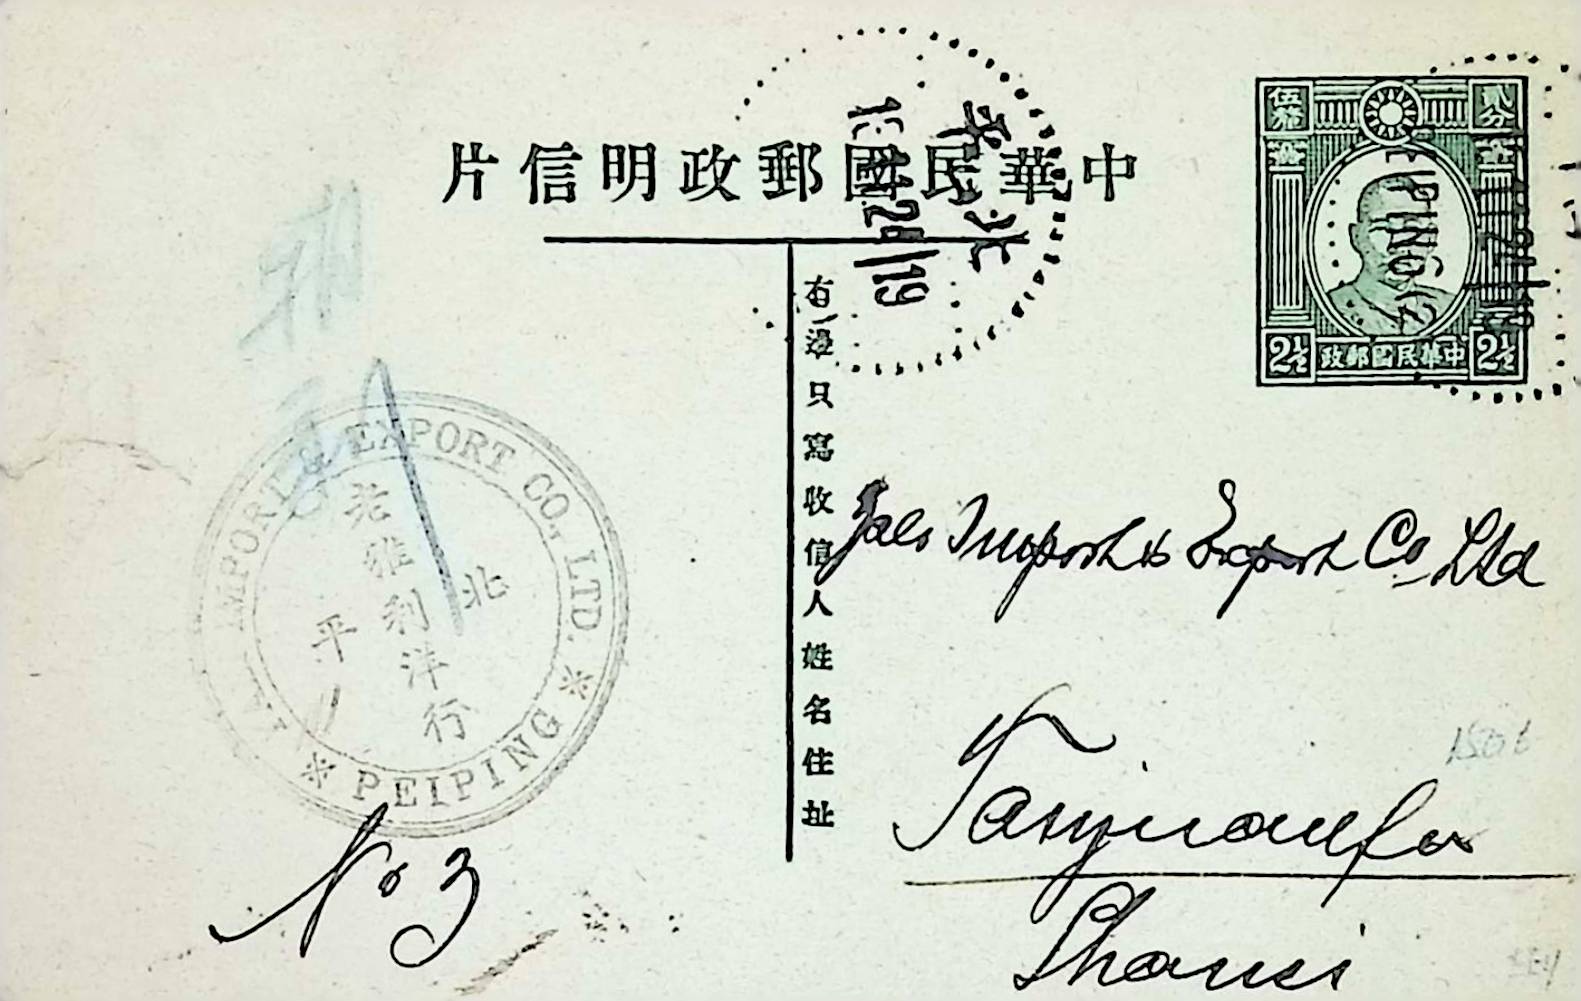 中華民國郵政明信片
伍釐
貳分
2½
中華民國郵政
2½
北平
24
19
PEIPING
右邊只寫收信人姓名住址
IMPORT & EXPORT CO., LTD. ※ PEIPING ※
雅利洋行
北平
Import & Export Co Ltd
Taiyuanfu
Shansi
No 3